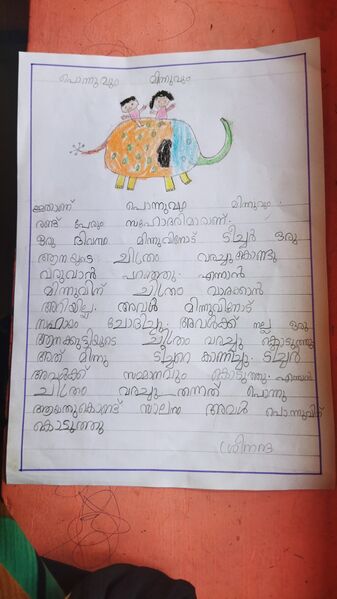 പൊന്നുവും മിന്നുവും
ഇതാണ് പൊന്നുവും മിന്നുവും.
രണ്ട് പേരും സഹോദരിമാരാണ്.
ഒരു ദിവസം മിന്നുവിനോട് ടീച്ചർ ഒരു
ആനയുടെ ചിത്രം വരച്ചു കൊണ്ടു
വരുവാൻ പറഞ്ഞു. എന്നാൽ
മിന്നുവിന് ചിത്രം വരക്കാൻ
അറിയില്ല. അവൾ മിന്നുവിനോട്
സഹായം ചോദിച്ചു. അവൾക്ക് നല്ല ഒരു
ആനക്കുട്ടിയുടെ ചിത്രം വരച്ചു കൊടുത്തു
അത് മിന്നു ടീച്ചറെ കാണിച്ചു. ടീച്ചർ
അവൾക്ക് സമ്മാനവും കൊടുത്തു.
ചിത്രം വരച്ചു തന്നത് പൊന്നു
ആയതുകൊണ്ട് സമ്മാനം അവൾ പൊന്നുവിന്
കൊടുത്തു
ശ്രീനന്ദ